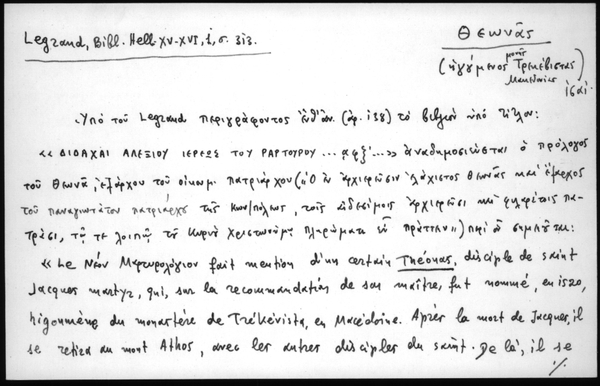 Legrand, Bibl. Hell. XV-XVI, 1, σ. 313.
Θεωνᾶς
(ἡγούμενος μονῆς Τρεκέβιστας
Μακεδονίας
Ὑπὸ τοῦ Legrand περιγράφοντος (ἀρ. 138) τὸ βιβλίον ὑπὸ τίτλον:
«ΔΙΔΑΧΑΙ ΑΛΕΞΙΟΥ ΙΕΡΕΩΣ ΤΟΥ ΡΑΡΤΟΥΡΟΥ ... αφξ΄...» ἀναδημοσιεύεται ὁ πρόλογος
τοῦ Θεωνᾶ, ἐξάρχου τοῦ οἰκουμ. πατριάρχου («Ὁ ἐν ἀρχιερεῦσιν ἐλάχιστος Θεωνᾶς καὶ ἔξαρχος
τοῦ παναγιωτάτου πατριάρχου τῆς Κων/πόλεως, τοῖς αἰδεσίμοις ἀρχιερεῦσι καὶ πα-
τράσι, τῷ τε λοιπῷ τῆς Χριστωνύμῳ πληρώματι εὖ πράττειν») περὶ οὗ σημειοῦται:
«Le Νέον Μαρτυρολόγιον fait mention d'un certain Théonas, disciple de saint
Jacques martyr, qui, sur la recommandation de son maître, fut nommé, en 1520,
higoumène du monastère de Trékévista, en Macédoine. Après la mort de Jacques, il
se retira au mont Athos, avec les autres disciples du saint. De là, il se
./.